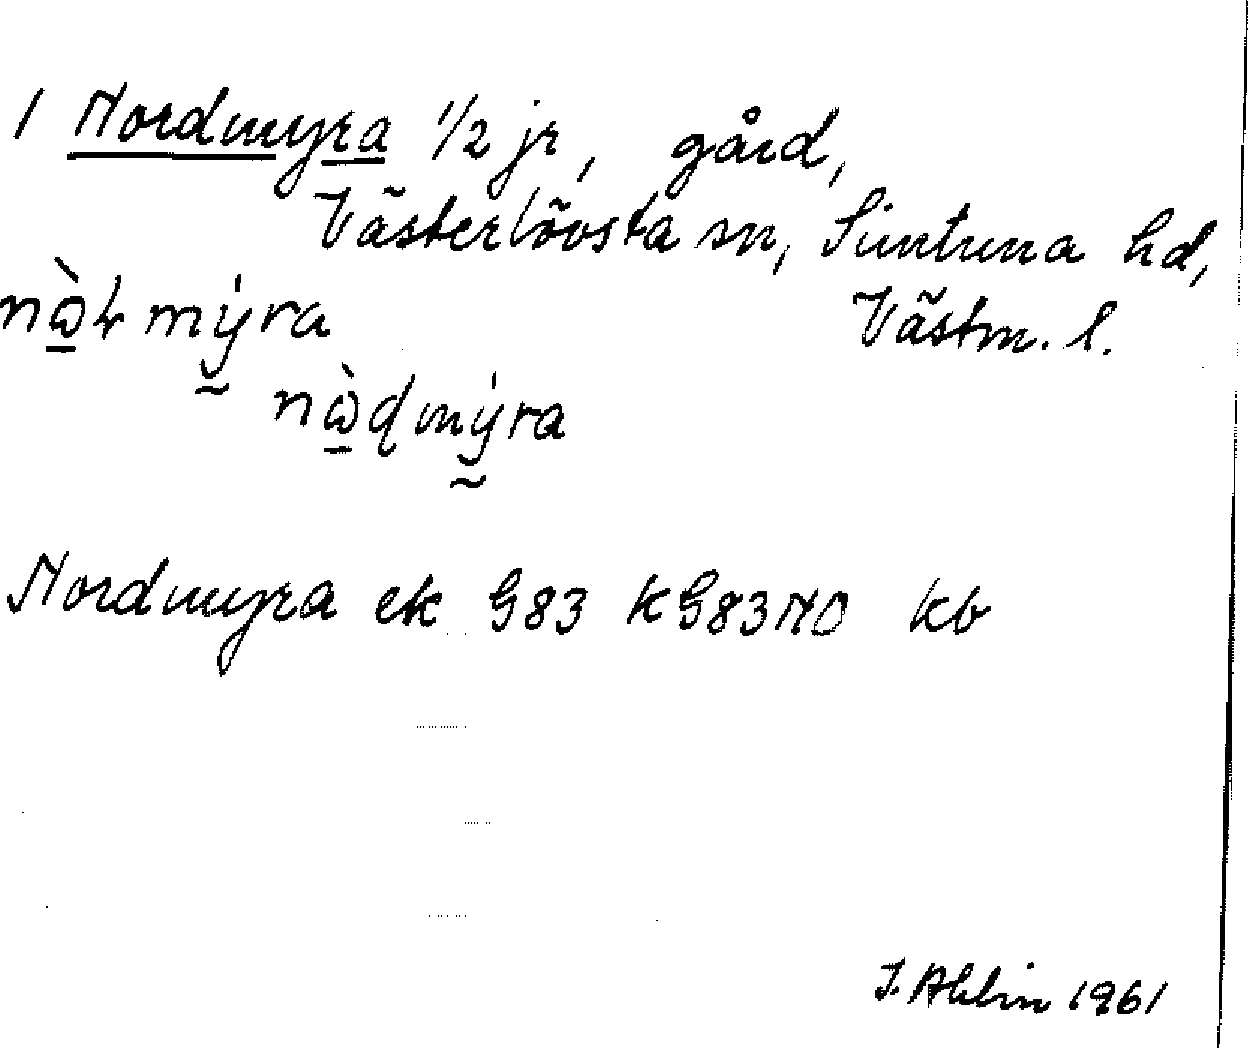 1 Nordmyra 1/2 jr, gård,
Västerlövsta sn, Simtuna hd,
Västm. l.
mýra
mýra
Nordmyra ek G83 KG83NO kb
I. Ahlin 1961